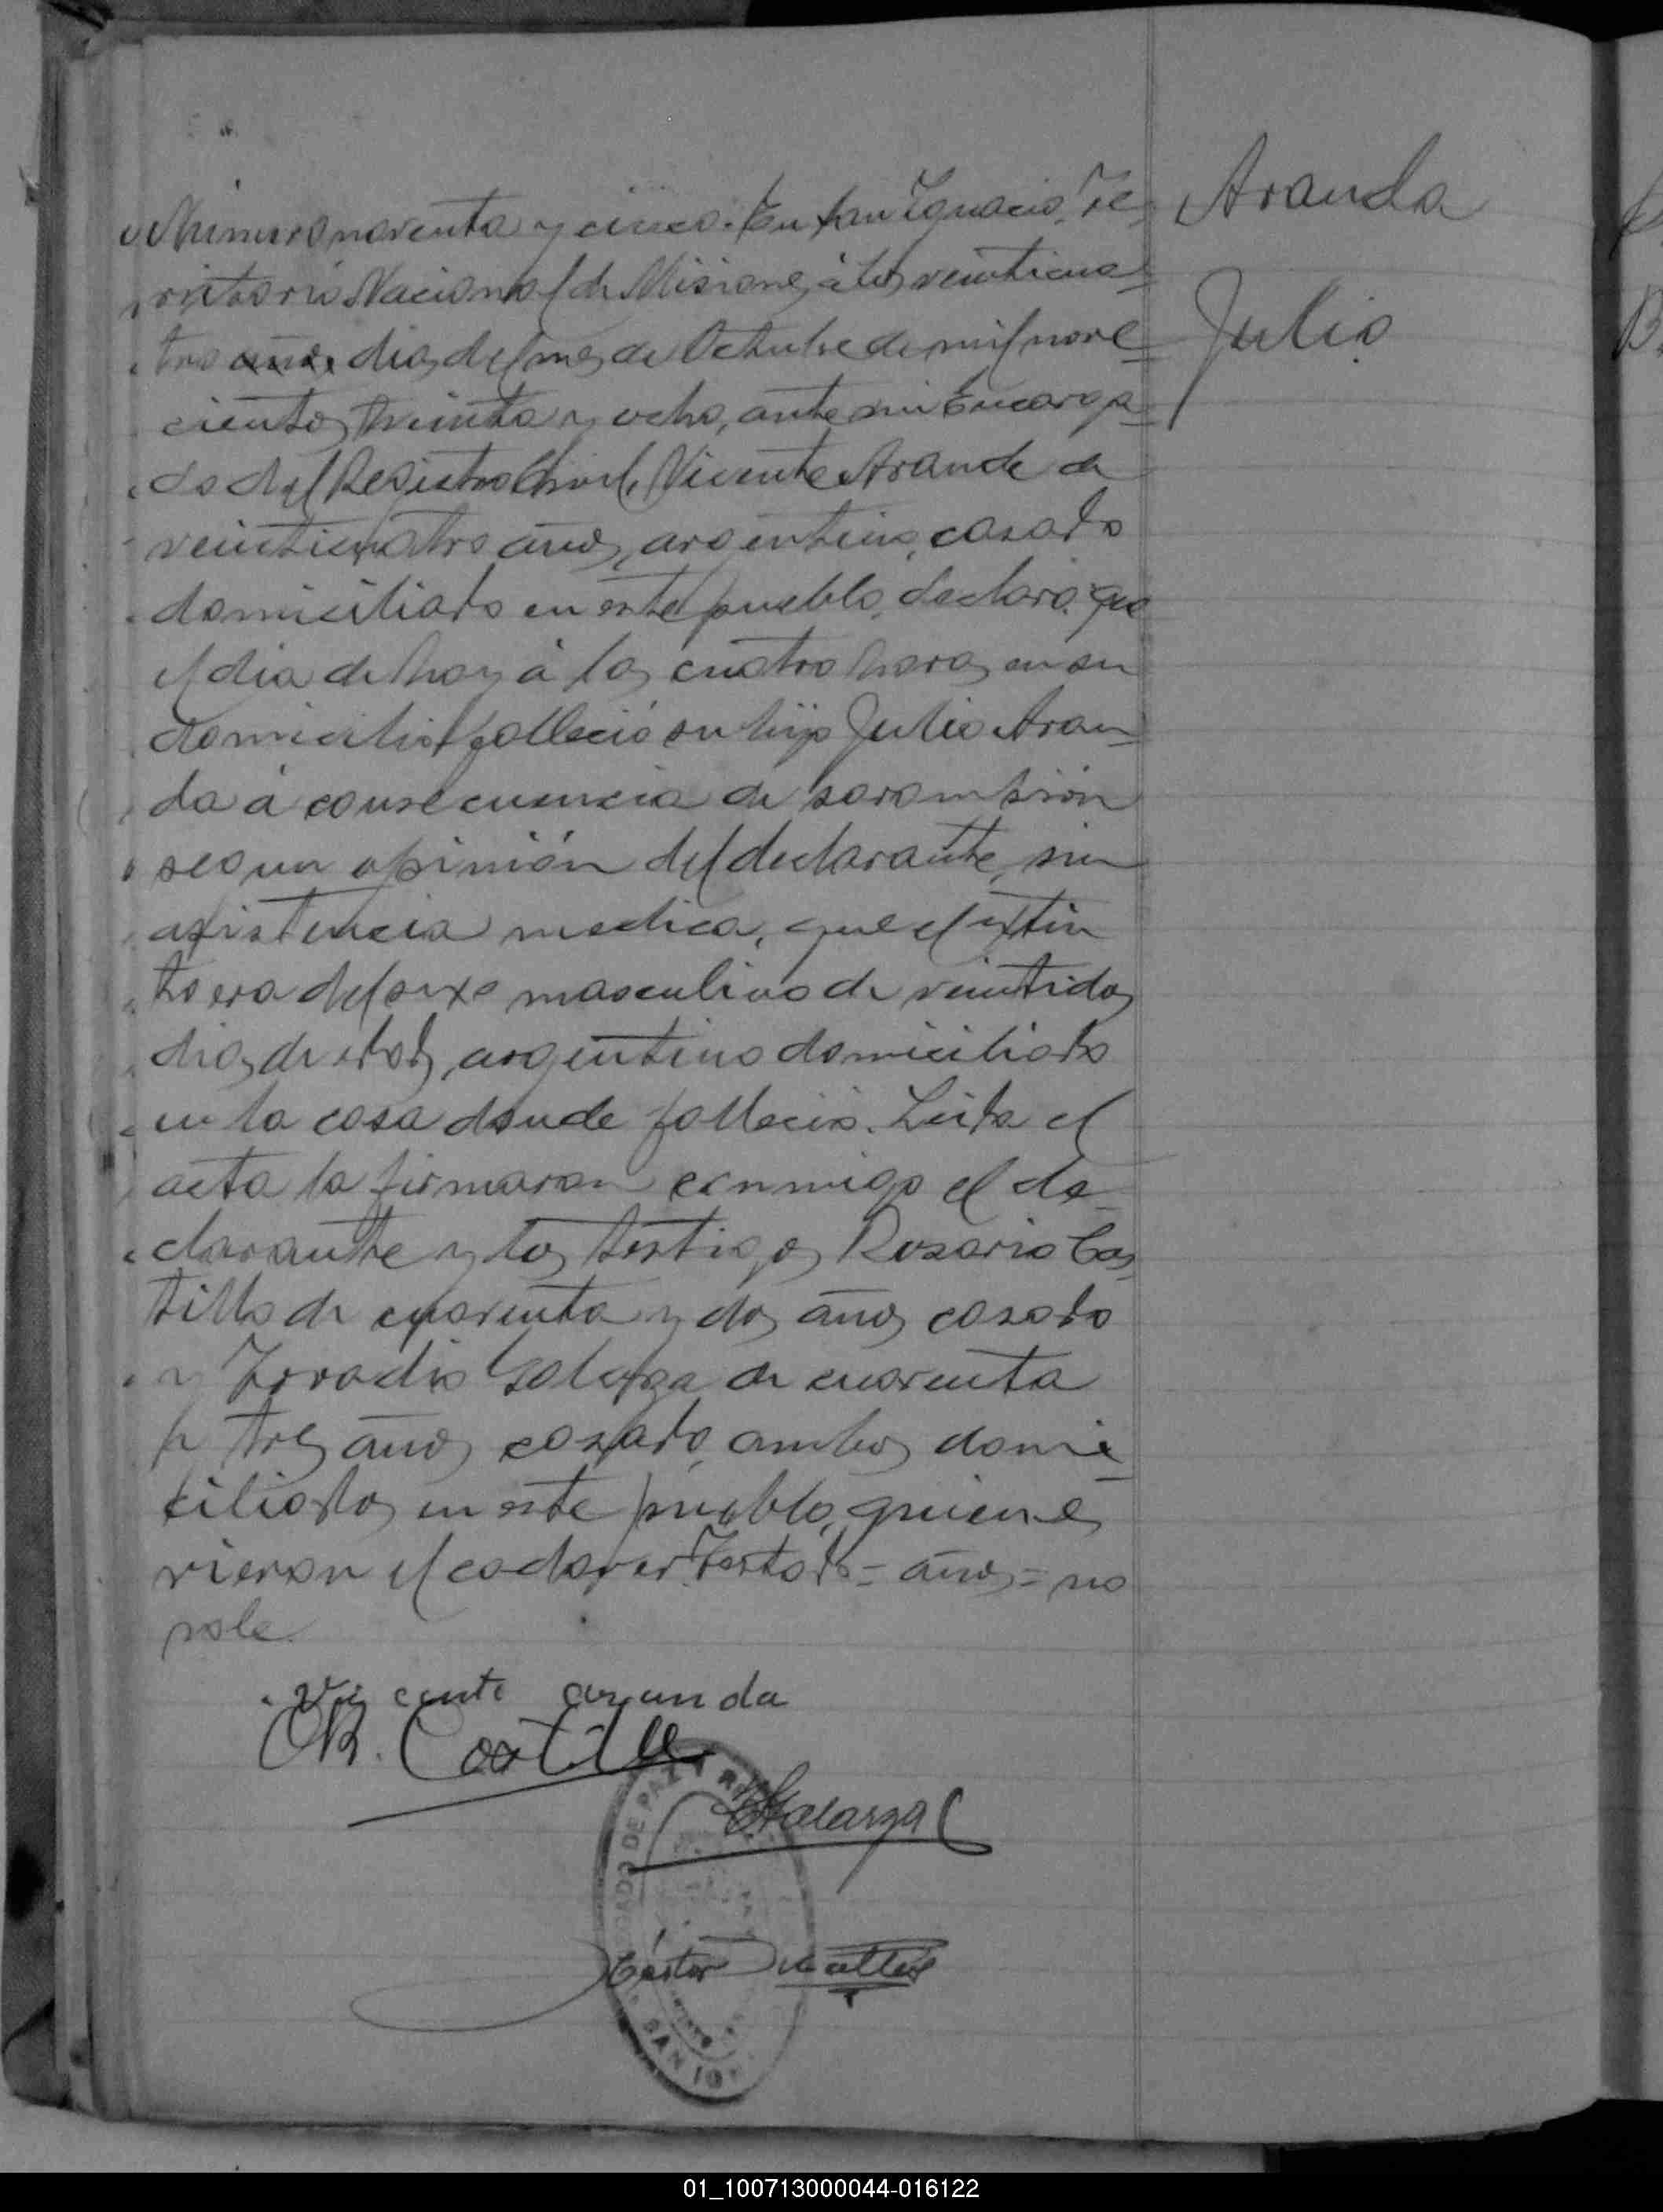 Número noventa y cinco. En San Ignacio, Te-
rritorio Nacional de Misiones, à los veinticua-
tro años dias del mes de Octubre de mil nove-
cientos treinta y ocho, ante mi Encarga-
do del Registro Civil, Vicente Aranda de
veinticuatro años, argentino, casado
domiciliado en este pueblo, declaró: que
el dia de hoy à las cuatro horas en su
domicilio falleció su hijo Julio Aran-
da à consecuencia de sarampión
segun opinión del declarante, sin
asistencia medica, que el extin
to era del sexo masculino de veintidos
dias de edad, argentino domiciliado
en la casa donde falleció. Leida el
acta la firmaron conmigo el de-
clarante y los testigos Rosario Cas
tillo de cuarenta y dos años casado
y de cuarenta
y tres años casado, ambos domi-
ciliados en este pueblo, quienes
vieron el cadaver. Testado = años = no
vale.
Aranda
Julio
Vicente aranda
R. Castillo
Galarza
Cástor
JUZGADO DE PAZ Y
SAN IG
01_100713000044-016122